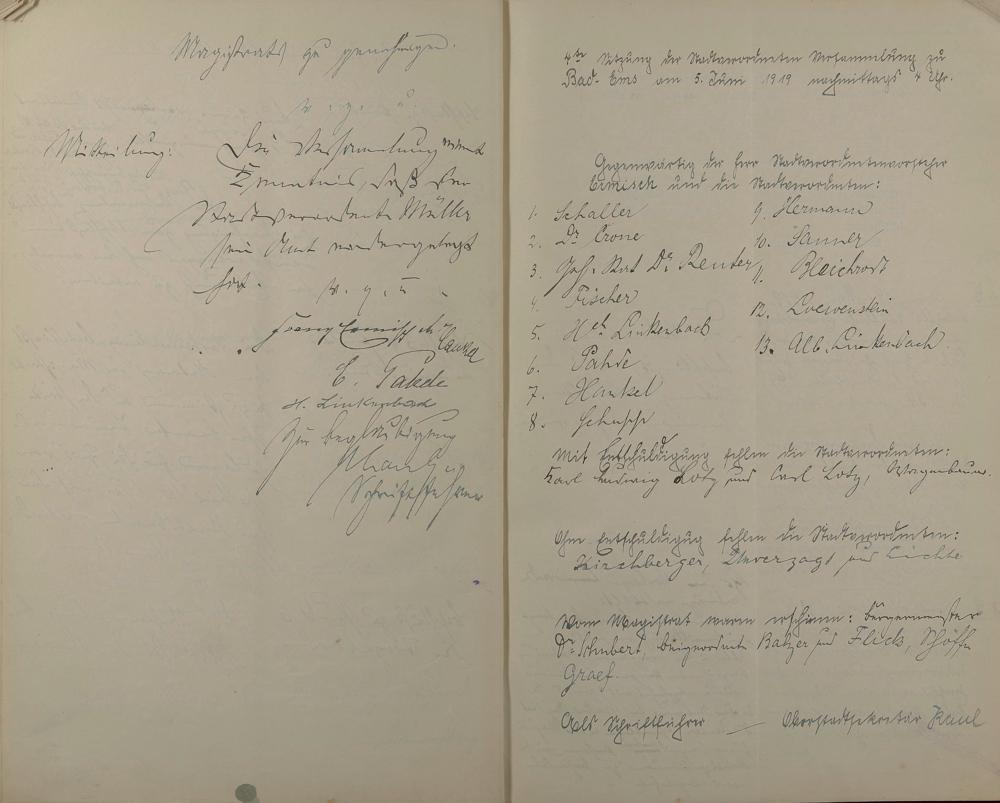 Magistrats zu genehmigen.
v. g. u.
Mitteilung:
Die Versammlung nimmt
Kenntnis, daß der
Stadtverordnete Müller
sein Amt niedergelegt
hat.
v. g. u.
Franz Ermisch
E. Pahde
H. Linkenbach
Zur Beglaubigung
Schriftführer
4te Sitzung der Stadtverordneten Versammlung zu
Bad-Ems am 5. Juni 1919 nachmittags 4 Uhr.
Gegenwärtig der Herr Stadtverordnetenvorsteher
Ermisch und die Stadtverordneten:
1. Schaller
2. Dr Crone
3. Geh. Rat Dr. Reuter
4. Fischer
5. Hch. Linkenbach
6. Pahde
7. Hankel
8. Schupp
9. Hermann
10. Sanner
11. Bleichrodt
12. Loewenstein
13. Alb. Linkenbach.
Mit Entschuldigung fehlen die Stadtverordneten:
Karl Ludwig Lotz und Carl Lotz,
Ohne Entschuldigug fehlen die Stadtverordneten:
Hirschberger, Unverzagt und Lichte
Vom Magistrat waren erschienen: Bürgermeister
Dr. Schubert, Beigeordnete Balzer und Flick, Schöffe
Graef.
Als Schriftführer — Oberstadtsekretär Kaul